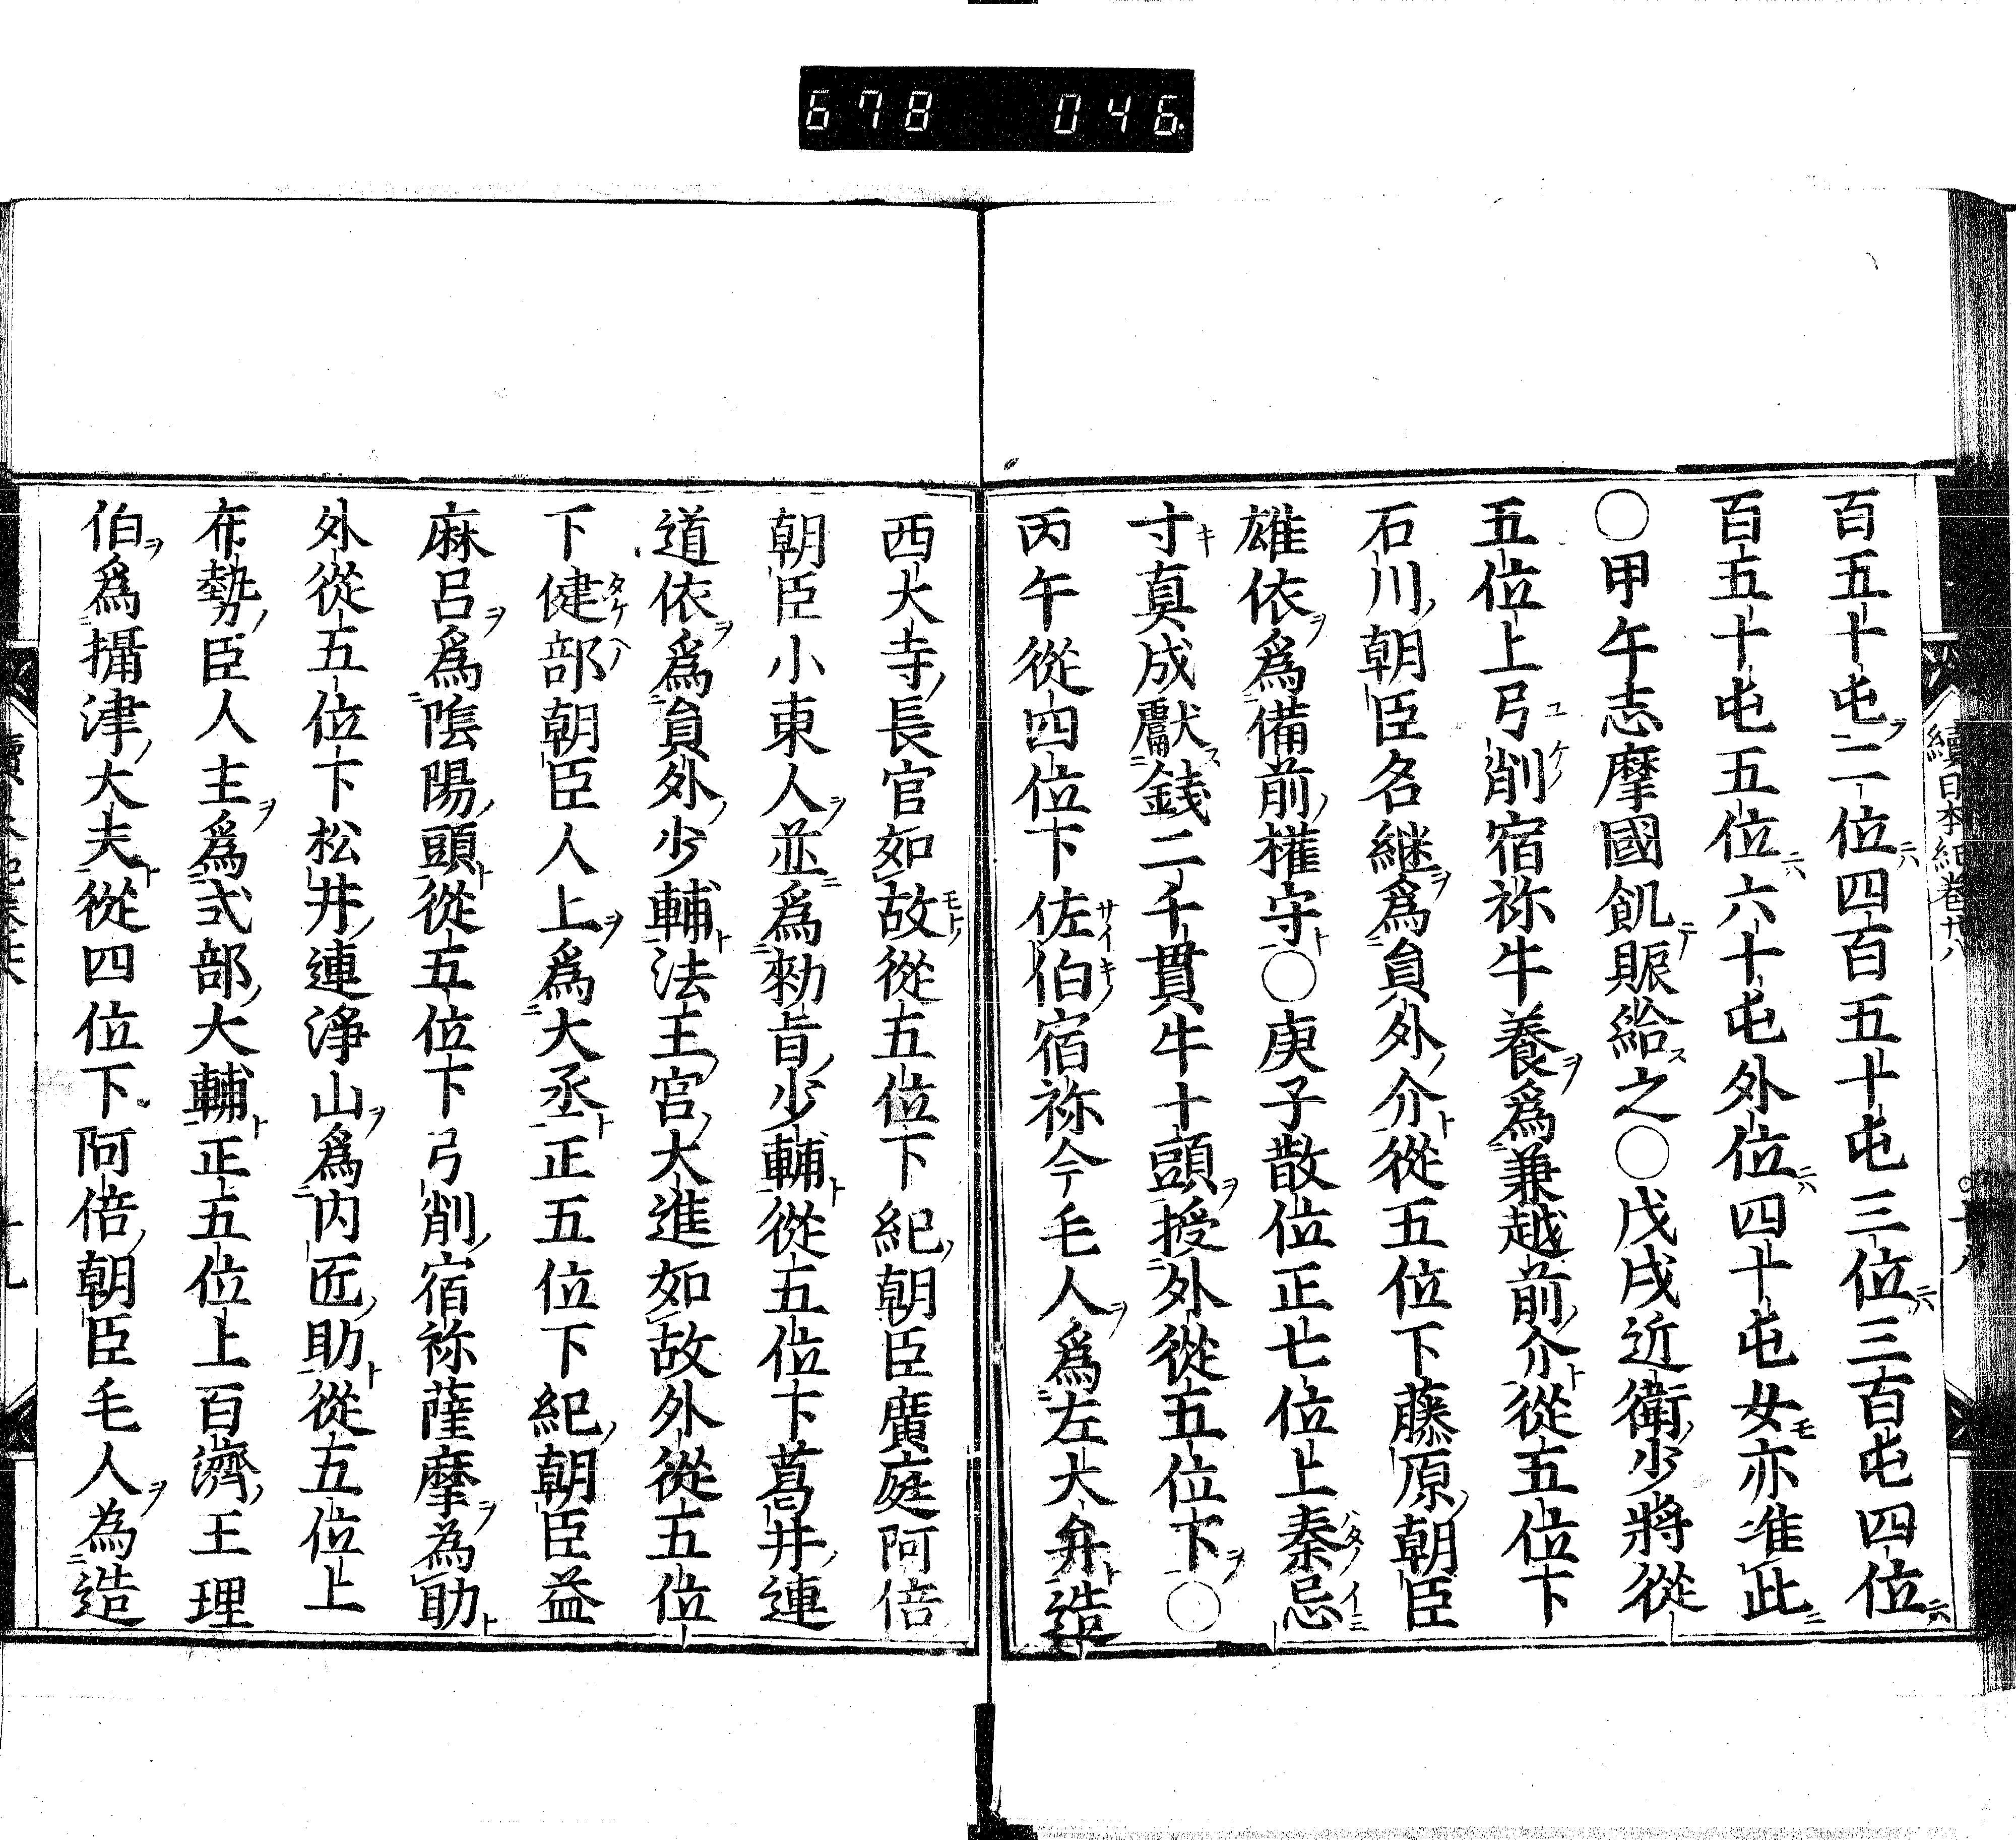 678 046
續日本紀卷廿八
百五十屯二位四百五十屯三位三百屯四位
百五十屯五位六十屯外位四十屯女亦准此
○甲午志摩國飢賑給之○戊戌近衛少將從
五位上弓削宿祢牛養爲兼越前介從五位下
石川朝臣名継爲員外介從五位下藤原朝臣
雄依爲備前權守○庚子散位正七位上秦忌
寸真成獻錢二千貫牛十頭授外從五位下○
丙午從四位下佐伯宿祢今毛人爲左大弁造
西大寺長官如故從五位下紀朝臣廣庭阿倍
朝臣小東人並爲勅旨少輔從五位下葛井連
道依爲員外少輔法王宮大進如故外從五位
下健部朝臣人上爲大丞正五位下紀朝臣益
麻呂爲陰陽頭從五位下弓削宿祢薩摩為助
外從五位下松井連淨山爲内匠助從五位上
布勢臣人主爲式部大輔正五位上百濟王理
伯爲攝津大夫從四位下阿倍朝臣毛人為造